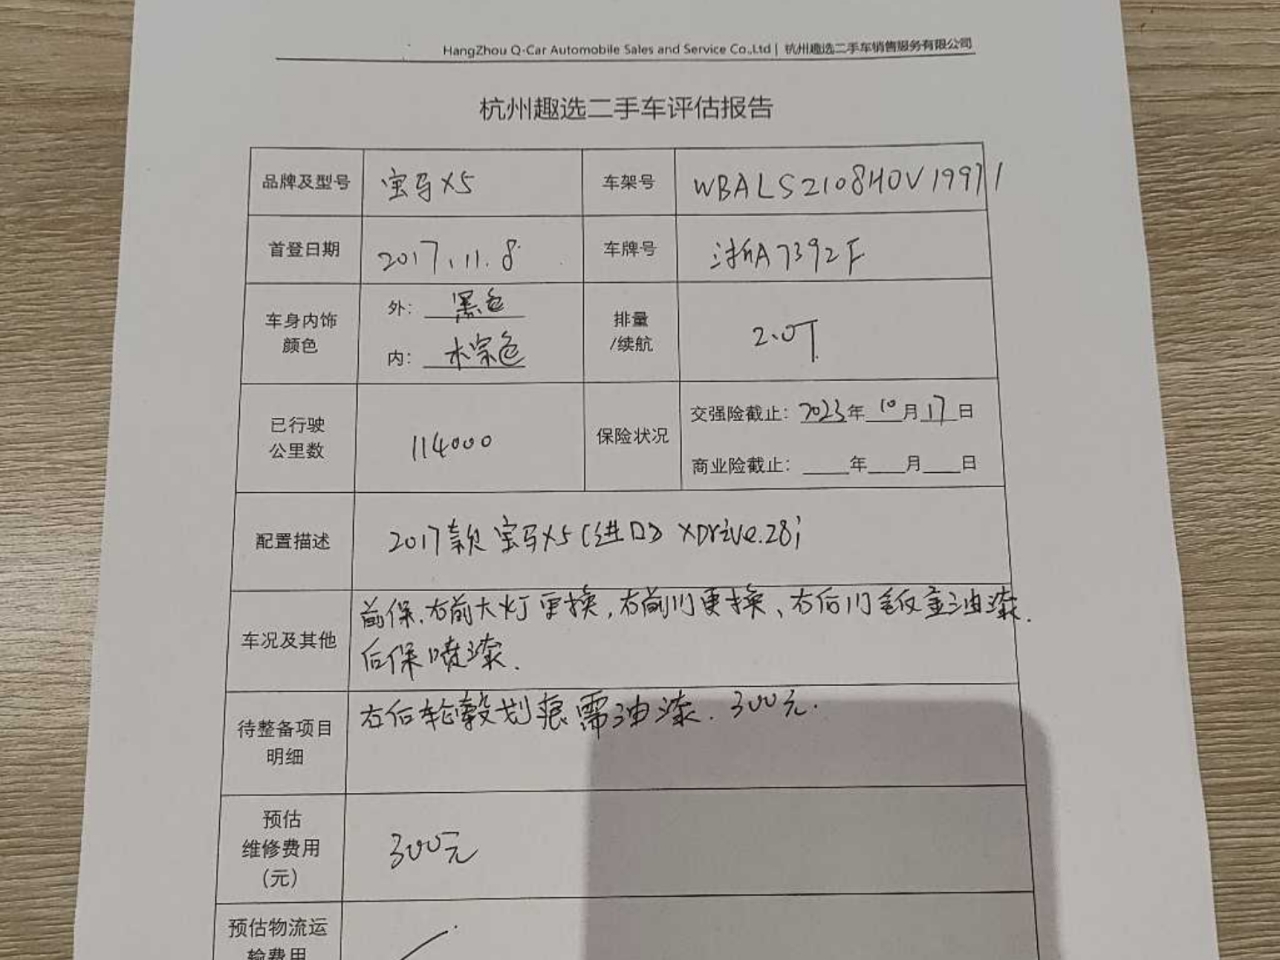 HangZhou Q-Car Automobile Sales and Service Co.,Ltd | 杭州趣选二手车销售服务有限公司
杭州趣选二手车评估报告
品牌及型号 宝马X5 车架号 WBALS2108H0V19971
首登日期 2017.11.8 车牌号 浙A7392F
车身内饰
颜色
外: 黑色
内: 木棕色
排量
/续航
2.0T
已行驶
公里数
114000
保险状况
交强险截止: 2023年10月17日
商业险截止: ____年____月____日
配置描述 2017款宝马X5(进口) xDrive.28i
车况及其他
前保、右前大灯更换,右前门更换、右后门钣金油漆.
后保喷漆.
待整备项目
明细
右后轮毂划痕需油漆. 300元.
预估
维修费用
(元)
300元
预估物流运
输费用